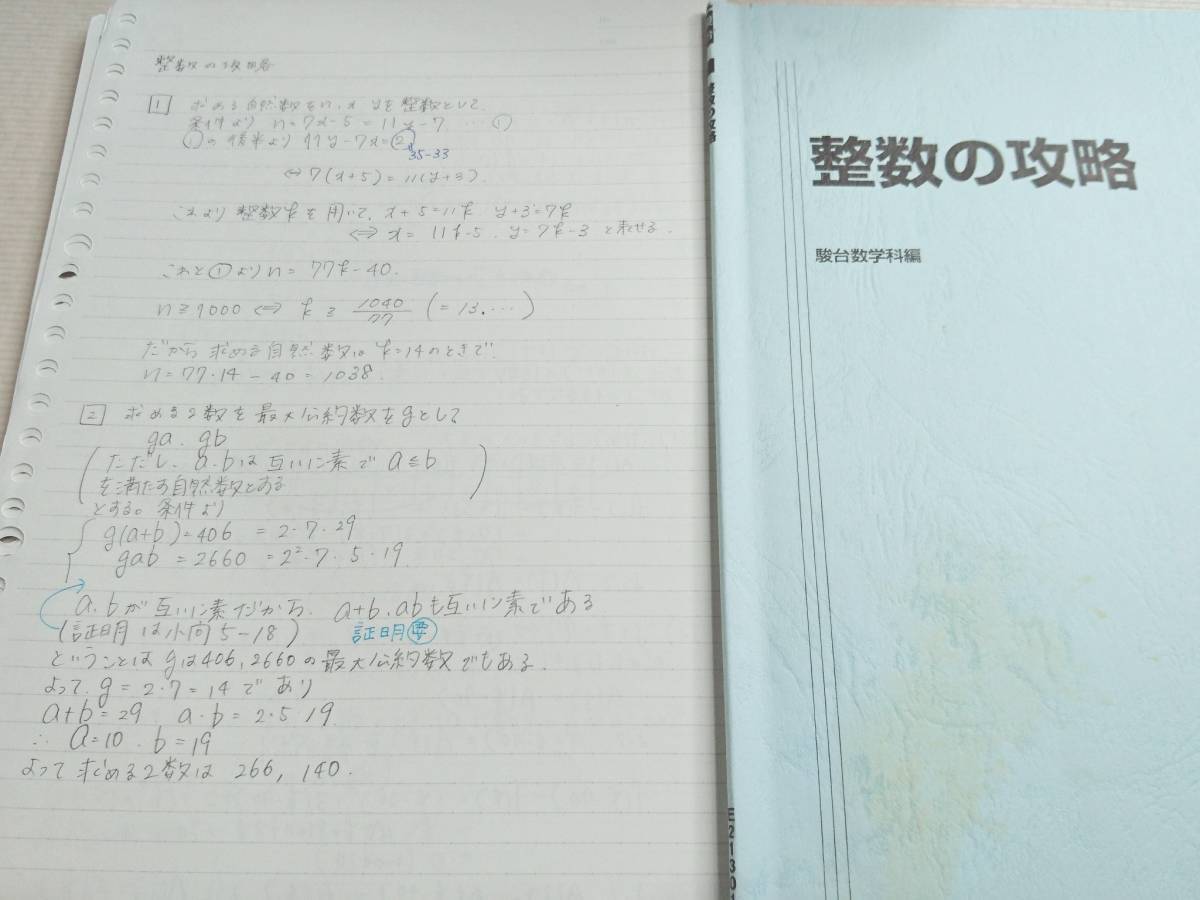 整数の攻略
1 求める自然数をn, x yを整数として
条件より n=7x-5=11y-7 … ①
①の 後半より 11y-7x=2
35-33
⇔ 7(x+5)=11(y+3)
これより 整数kを用いて, x+5=11k y+3=7k
⇔ x= 11k-5. y=7k-3 と表せる.
これと①よりn= 77k-40.
n≧1000 ⇔ k≧ 1040/77 (=13.…)
だから 求める自然数は k=14のときで
n=77・14-40=1038.
2 求める2数を最大公約数をgとして
ga. gb
(ただし. a.bは互いに素で a≦b
を満たす自然数とする)
とする。条件より
g(a+b)=406 =2・7・29
gab =2660 =2²・7・5・19
a.bが互いに素だから. a+b.abも互いに素である
(証明は小問5-18) 証明要
ということは gは406,2660の最大公約数でもある.
よって. g=2・7=14であり
a+b=29 a・b=2・5 19
∴ a=10. b=19
よって求める2数は 266, 140.
整数の攻略
駿台数学科編
整数の攻略